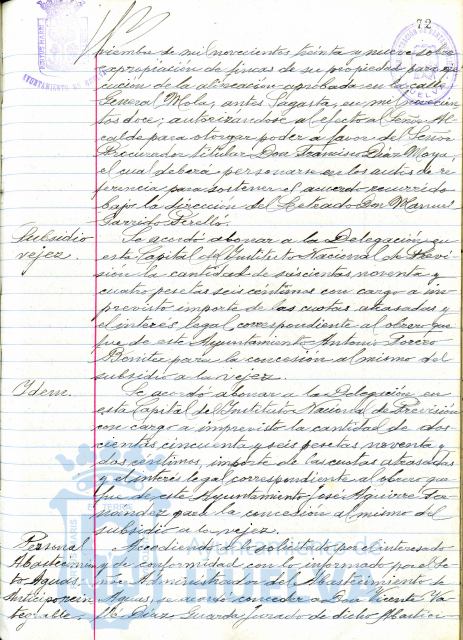 72
viembre de mil novecientos treinta y nueve sobre
expropiación de fincas de su propiedad para eje-
cución de la alineación aprobada en la calle
General Mola, antes Sagasta, en mil novecien
tos doce; autorizandose al efecto a Señor Al-
calde para otorgar poder a favor del Señor
Procurador titular Don Francisco Díaz Moya,
el cual deberá personarse en los autos de re-
ferencia para sostener el acuerdo recurrido
bajo la dirección del Letrado Don Manuel
Garrido Perelló.
Subsidio
vejez.
Se acordó abonar a la Delegación en
esta Capital del Instituto Nacional de Previ-
sión la cantidad de seiscientas noventa y
cuatro pesetas seis céntimos con cargo a im-
previsto importe de las cuotas atrasadas y
el interés legal correspondiente al obrero que
fue de este Ayuntamiento Antonio Forero
Benitez para la concesión al mismo del
subsidio a la vejez.
Idem.
Se acordó abonar a la Delegación en
esta Capital del Instituto Nacional de Previsión
con cargo a imprevisto la cantidad de dos
cientas cincuenta y seis pesetas noventa y
dos centimos, importe de las cuotas atrasadas
y el interés legal correspondiente al obrero que
fue de este Ayuntamiento José Aguirre Fer-
nández para la concesión al mismo del
subsidio a la vejez.
Personal
Abastecimien
to Aguas.
Anticipo rein
tegrable.
Accediendo a lo solicitado por el interesado
y de conformidad con lo informado por el Se-
ñor Administrador del Abastecimiento de
Aguas, se acordó conceder a Don Vicente Va
Díaz Guarda Jurado de dicho Abasteci
AYUNTAMIENTO DE HUELVA
HUELVA